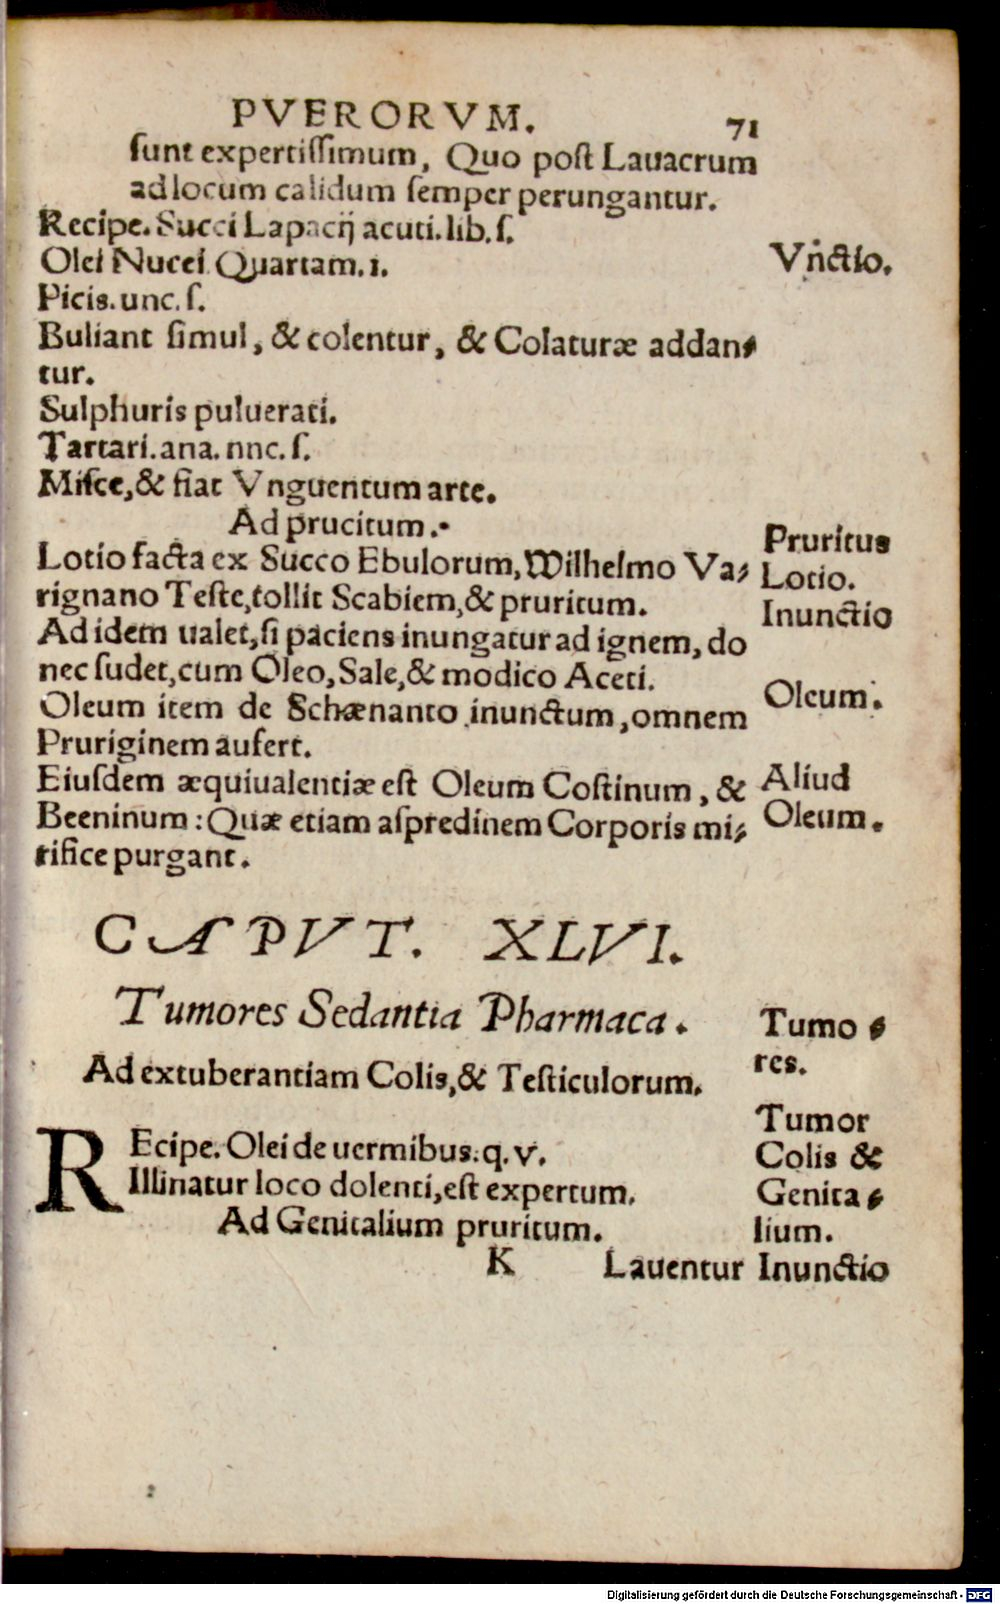 PVERORVM. 71
sunt expertissimum, Quo post Lauacrum
ad locum calidum semper perungantur.
Recipe. Succi Lapacij acuti. lib. s.
Olei Nucei Quartam. 1.
Vnctio.
Picis. unc. s.
Buliant simul, & colentur, & Colaturæ addan⸗
tur.
Sulphuris puluerati.
Tartari. ana. nnc. s.
Misce, & fiat Vnguentum arte.
Ad prucitum.
Pruritus
Lotio facta ex Succo Ebulorum, Wilhelmo Va⸗
Lotio.
rignano Teste, tollit Scabiem, & pruritum.
Inunctio
Ad idem ualet, si paciens inungatur ad ignem, do
nec sudet, cum Oleo, Sale, & modico Aceti.
Oleum.
Oleum item de Schænanto inunctum, omnem
Pruriginem aufert.
Eiusdem æquiualentiæ est Oleum Costinum, &
Aliud
Beeninum: Quæ etiam aspredinem Corporis mi⸗
Oleum.
rifice purgant.
CAPVT. XLVI.
Tumores Sedantia Pharmaca.
Tumo⸗
res.
Ad extuberantiam Colis, & Testiculorum.
Tumor
Colis &
Genita⸗
lium.
REcipe. Olei de uermibus. q. v.
Illinatur loco dolenti, est expertum.
Ad Genitalium pruritum.
K Lauentur
Inunctio
Digitalisierung gefördert durch die Deutsche Forschungsgemeinschaft - DFG